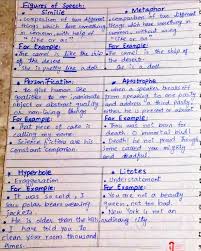 Figures of Speech:
Simile
• comparison of two different
things which have something
in common with help of
"like or as"
For Example:
The camel is like the ship
of the desert.
She is pretty like a doll
Personification:
qualities to an inanimate
object or abstract quality
or non-living things
For Example:
• That piece of cake is
calling my name.
• Science fictions are his
constant companion
Hyperbole
• Exaggeration
For Example:
• It was so cold, I
saw polar bears wearing
jackets
• He is older than the hills
• I have told you to
clean your room thousand
times
• Metaphor
• comparison of two different
things which have something in
common, without using
"like or as"
For Example:
• The camel is the ship of
the desert.
• She is a doll.
• Apostrophe
when a speaker breaks off
speakers to one party
and address a third party
For Example:
• You was not born for
death, O immortal bird!
• Death, be not proud though
some called you mighty
and dreadful.
• Litotes
• Understatement
For Example:
• You are not a beauty
queen, not too bad.
• New York is not an
ordinary city.